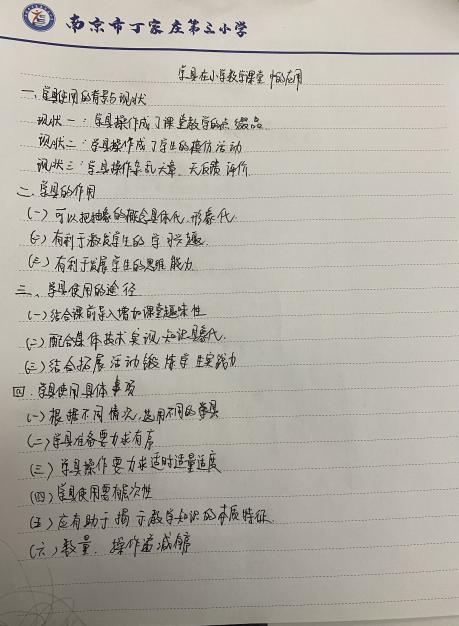 南京市丁家庄第三小学
学具在小学数学课堂中的应用
一、学具使用的背景与现状
现状一：学具操作成了课堂教学的点缀品
现状二：学具操作成了学生的模仿活动
现状三：学具操作杂乱无章，无反馈评价
二、学具的作用
(一)可以把抽象的概念具体化，形象化
(二)有利于激发学生的学习兴趣
(三)有利于发展学生的思维能力
三、学具使用的途径
(一)结合课前导入增加课堂趣味性
(二)配合媒体技术实现知识具象化
(三)结合拓展活动锻炼学生实践力
四、学具使用具体事项
(一)根据不同情况，选用不同的学具
(二)学具准备要力求有序
(三)学具操作要力求适时适量适度
(四)学具使用要有层次性
(五)应有助于揭示数学知识的本质特征
(六)数量、操作需减